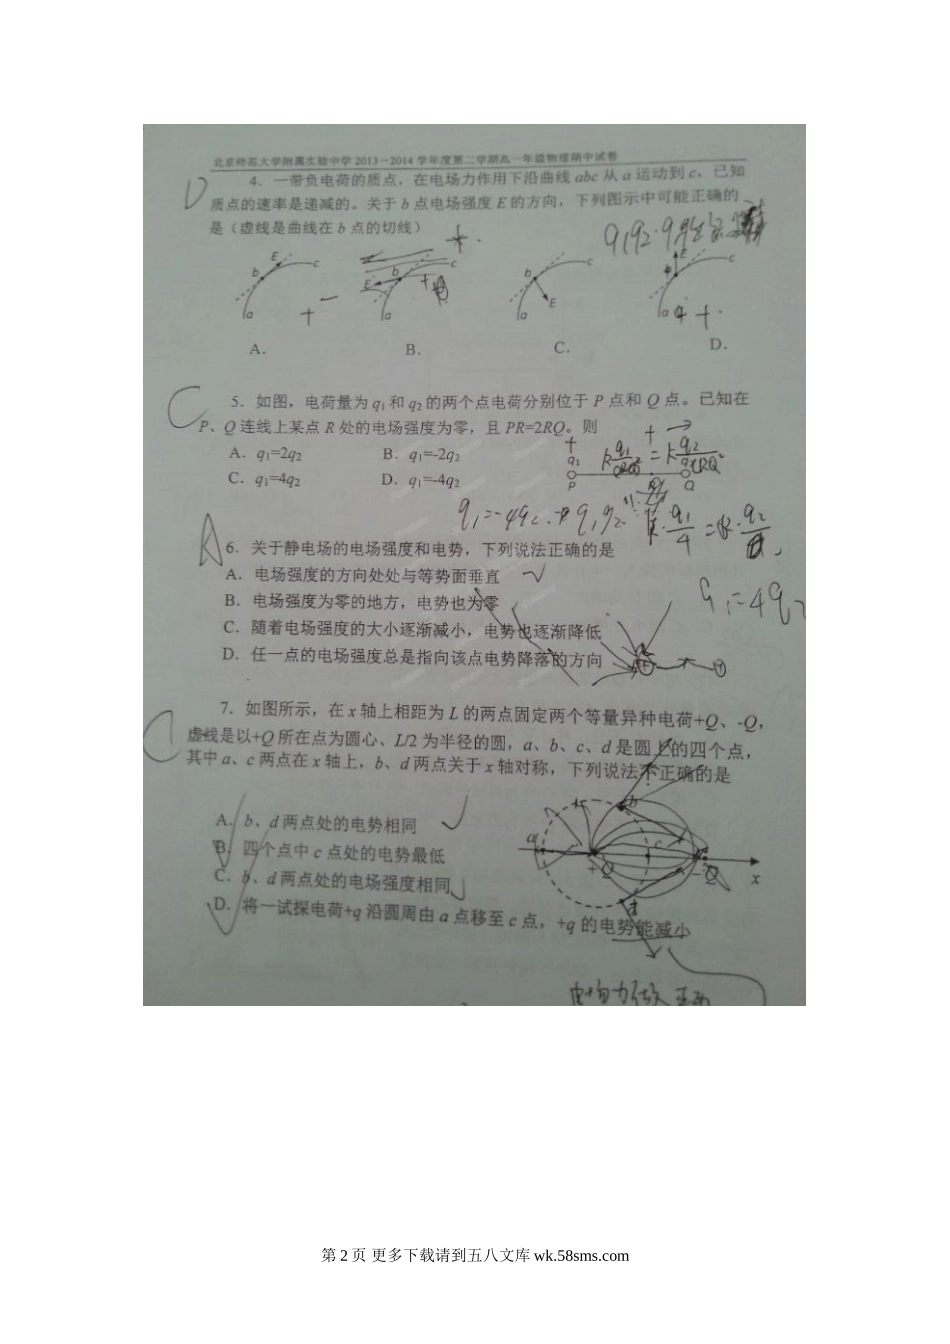 北京师范大学附属实验中学2013－2014学年度第二学期高一年级物理期中试卷
D
4．一带负电荷的质点，在电场力作用下沿曲线 abc 从 a 运动到 c，已知
质点的速率是递减的。关于 b 点电场强度 E 的方向，下列图示中可能正确的
是（虚线是曲线在 b 点的切线）
E b c a
E b c a
b c E a
E c a
A． B． C． D．
C
5．如图，电荷量为 q1 和 q2 的两个点电荷分别位于 P 点和 Q 点。已知在
P、Q 连线上某点 R 处的电场强度为零，且 PR=2RQ。则
A．q1=2q2 B．q1=-2q2
C．q1=4q2 D．q1=-4q2
q1 P Q
A
6．关于静电场的电场强度和电势，下列说法正确的是
A．电场强度的方向处处与等势面垂直
B．电场强度为零的地方，电势也为零
C．随着电场强度的大小逐渐减小，电势也逐渐降低
D．任一点的电场强度总是指向该点电势降落的方向
q1=4q2
C
7．如图所示，在 x 轴上相距为 L 的两点固定两个等量异种电荷+Q、-Q，
虚线是以+Q 所在点为圆心、L/2 为半径的圆，a、b、c、d 是圆上的四个点，
其中 a、c 两点在 x 轴上，b、d 两点关于 x 轴对称，下列说法不正确的是
A．b、d 两点处的电势相同
B．四个点中 c 点处的电势最低
C．b、d 两点处的电场强度相同
D．将一试探电荷+q 沿圆周由 a 点移至 c 点，+q 的电势能减小
a b c d +Q -Q x
第 2 页 更多下载请到五八文库 wk.58sms.com